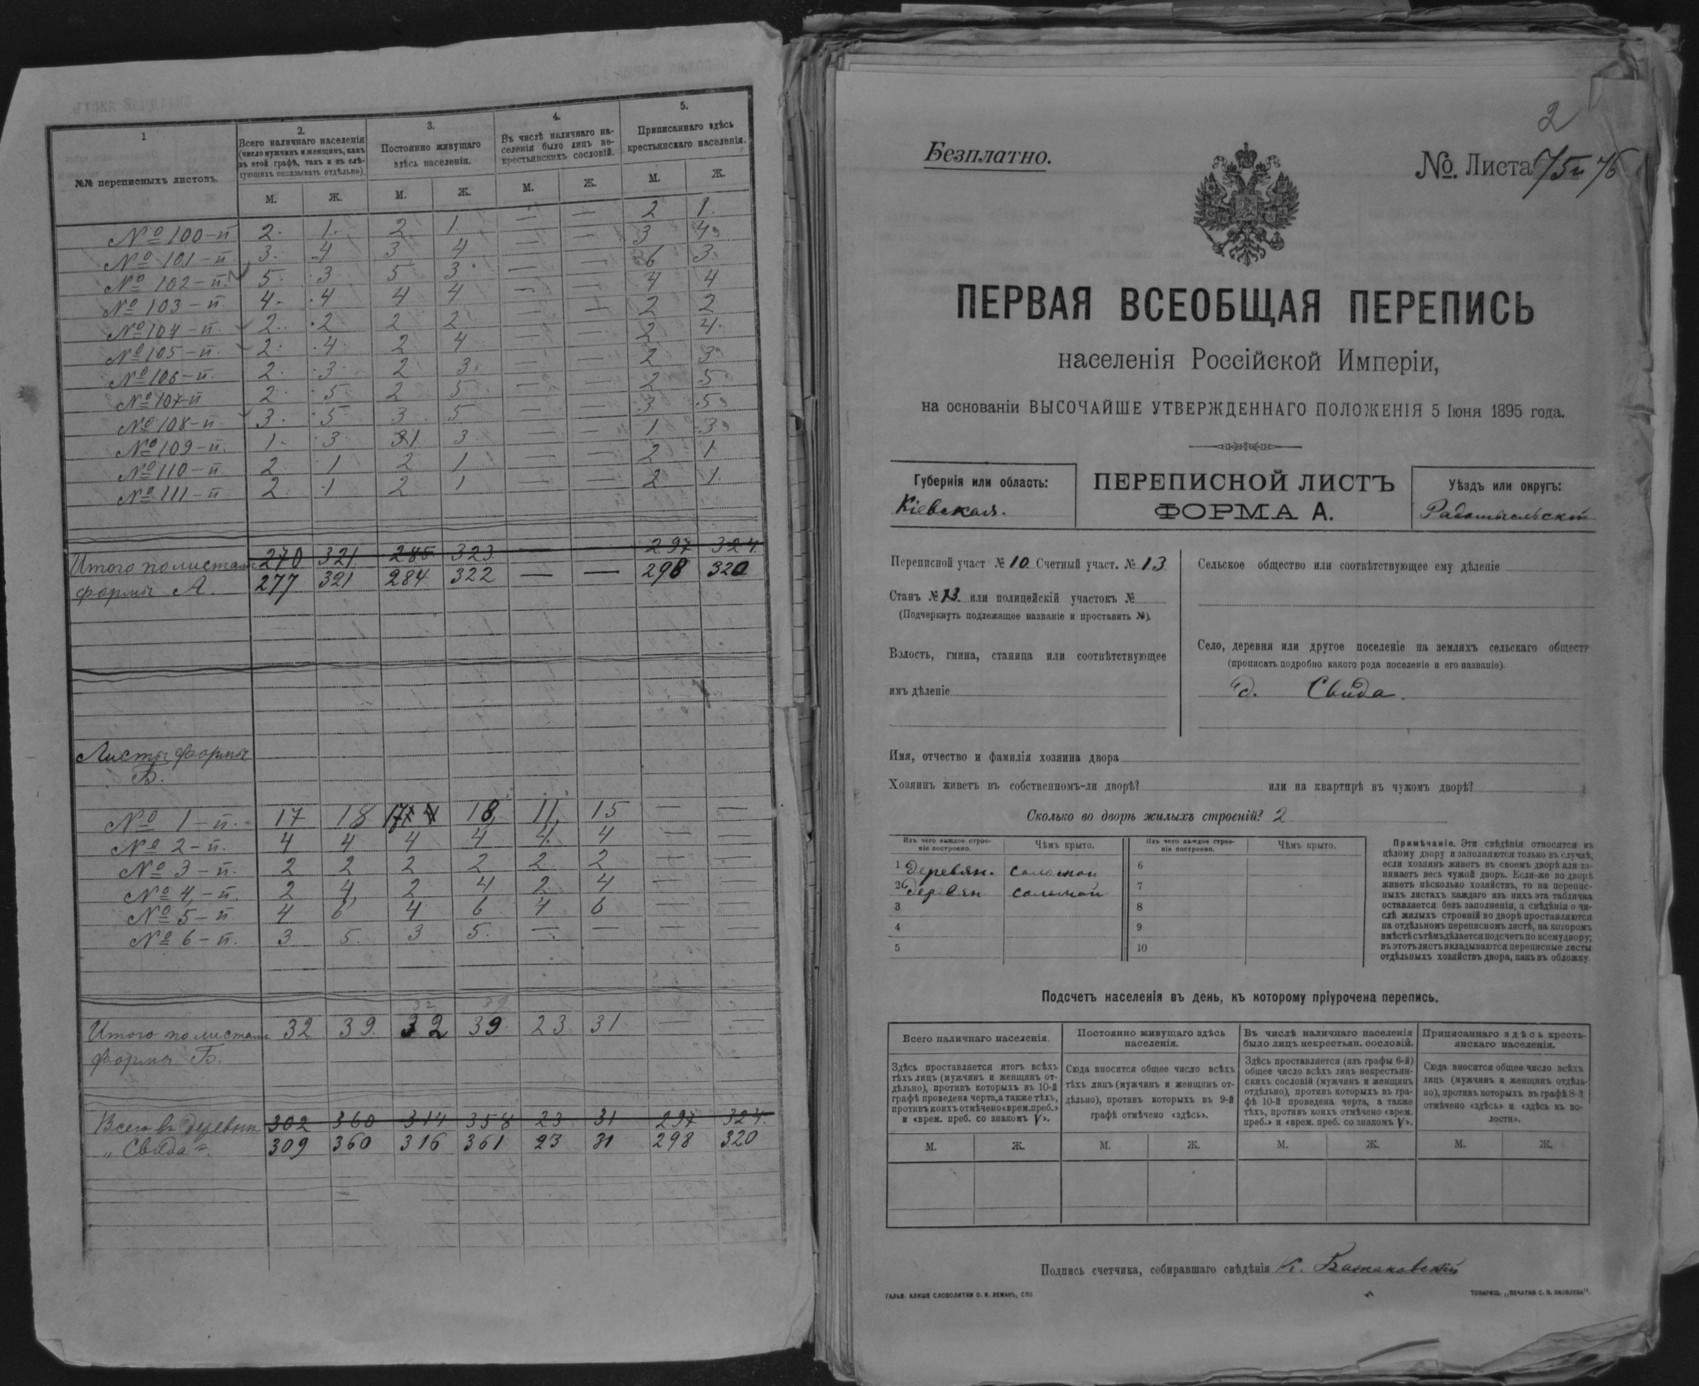 1
№№ переписныхъ листовъ.
2.
Всего наличнаго населенія
(число мужчинъ и женщинъ, какъ
въ этой графѣ, такъ и въ слѣ-
дующихъ показывать отдѣльно).
3.
Постоянно живущаго
здѣсь населенія.
4.
Въ числѣ наличнаго на-
селенія было лицъ не-
крестьянскихъ сословій.
5.
Приписаннаго здѣсь
крестьянскаго населенія.
М. Ж. М. Ж. М. Ж. М. Ж.
№ 100-й 2. 1. 2 1 — — 2 1.
№ 101-й 3. 4 3 4 — — 3 4
№ 102-й. 5. 3 5 3 — — 6 3.
№ 103-й. 4. 4 4 4 — — 4 4
№ 104-й 2. 2 2 2 — — 2 2
№ 105-й. 2. 4 2 4 — — 2 4.
№ 106-й. 2. 3 2 3. — — 2 3
№ 107-й 2. 5 2 5 — — 2 5
№ 108-й 3. 5 3. 5 — — 3 5
№ 109-й. 1. 3 1 3 — — 1 3
№ 110-й 2. 1 2 1 — — 2 1
№ 111-й 2. 1 2 1 — — 2 1.
270 321 285 323 — — 297 324.
Итого по листамъ
формы А. 277 321 284 322 — — 298 320
Листы формы
Б.
№ 1-й. 17 18 17 18 11 15 — —
№ 2-й. 4 4 4 4 4 4 — —
№ 3-й. 2 2 2 2 2 2 — —
№ 4-й. 2 4 2 4 2 4 — —
№ 5-й 4 6 4 6 4 6 — —
№ 6-й. 3 5. 3 5. — — — —
32 39
Итого по листамъ 32 39 32 39 23 31 — —
формы Б.
Всего въ деревнѣ 302 360 314 358 23 31 297 324.
„Свида“. 309 360 316 361 23 31 298 320
2
Безплатно.
№. Листа 75 и 76
ПЕРВАЯ ВСЕОБЩАЯ ПЕРЕПИСЬ
населенія Россійской Имперіи,
на основаніи ВЫСОЧАЙШЕ УТВЕРЖДЕННАГО ПОЛОЖЕНІЯ 5 Іюня 1895 года.
Губернія или область:
Кіевская.
ПЕРЕПИСНОЙ ЛИСТЪ
ФОРМА А.
Уѣздъ или округъ:
Радомысльскій
Переписной участ № 10 Счетный участ. № 13
Станъ № 3. или полицейскій участокъ №
(Подчеркнуть подлежащее названіе и проставить №).
Волость, гмина, станица или соотвѣтствующее
имъ дѣленіе
Сельское общество или соотвѣтствующее ему дѣленіе
Село, деревня или другое поселеніе на земляхъ сельскаго обществ
(прописать подробно какого рода поселеніе и его названіе)
д. Свида.
Имя, отчество и фамилія хозяина двора
Хозяинъ живетъ въ собственномъ-ли дворѣ? или на квартирѣ въ чужомъ дворѣ?
Сколько во дворѣ жилыхъ строеній? 2
Изъ чего каждое строе-
ніе построено. Чѣмъ крыто. Изъ чего каждое строе-
ніе построено. Чѣмъ крыто.
1 деревян. соломой 6
2 деревян соломой 7
3 8
4 9
5 10
Примѣчаніе. Эти свѣдѣнія относятся къ
цѣлому двору и заполняются только въ случаѣ,
если хозяинъ живетъ въ своемъ дворѣ или за-
нимаетъ весь чужой дворъ. Если-же во дворѣ
живетъ нѣсколько хозяйствъ, то на перепис-
ныхъ листахъ каждаго изъ нихъ эта табличка
оставляется безъ заполненія, а свѣдѣнія о чи-
слѣ жилыхъ строеній во дворѣ проставляются
на отдѣльномъ переписномъ листѣ, на которомъ
вмѣстѣ съ тѣмъ дѣлается подсчетъ по всему двору;
въ этотъ листъ вкладываются переписные листы
отдѣльныхъ хозяйствъ двора, какъ въ обложку.
Подсчетъ населенія въ день, къ которому пріурочена перепись.
Всего наличнаго населенія.
Здѣсь проставляется итогъ всѣхъ
тѣхъ лицъ (мужчинъ и женщинъ от-
дѣльно), противъ которыхъ въ 10-й
графѣ проведена черта, а также тѣхъ,
противъ коихъ отмѣчено «врем. преб.»
и «врем. преб. со знакомъ V».
Постоянно живущаго здѣсь
населенія.
Сюда вносится общее число всѣхъ
тѣхъ лицъ (мужчинъ и женщинъ от-
дѣльно), противъ которыхъ въ 9-й
графѣ отмѣчено «здѣсь».
Въ числѣ наличнаго населенія
было лицъ некрестьян. сословій.
Здѣсь проставляется (изъ графы 6-й)
общее число всѣхъ лицъ некрестьян-
скихъ сословій (мужчинъ и женщинъ
отдѣльно), противъ которыхъ въ гра-
фѣ 10-й проведена черта, а также
тѣхъ, противъ коихъ отмѣчено «врем.
преб.» и «врем. преб. со знакомъ V».
Приписаннаго здѣсь кресть-
янскаго населенія.
Сюда вносится общее число всѣхъ
лицъ (мужчинъ и женщинъ отдѣль-
но), противъ которыхъ въ графѣ 8-й
отмѣчено «здѣсь» и «здѣсь въ во-
лости».
М. Ж. М. Ж. М. Ж. М. Ж.
Подпись счетчика, собиравшаго свѣдѣнія К. Бажановскій
ГАЛЬВ. КЛИШЕ СЛОВОЛИТНИ О. И. ЛЕМАНЪ, СПБ.
ТОВАРИЩ. „ПЕЧАТНЯ С. П. ЯКОВЛЕВА“.